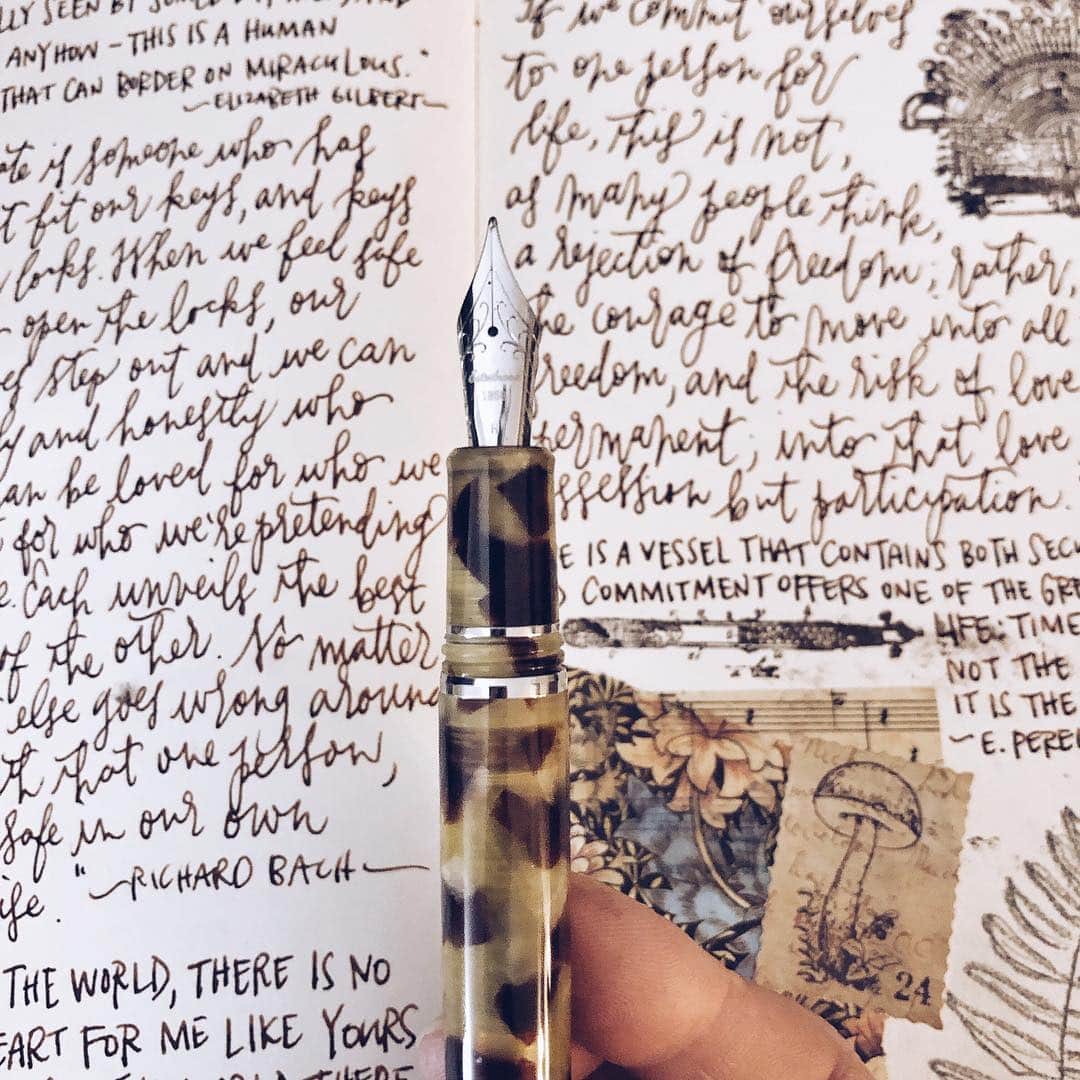 LLY SEEN BY
ANYHOW – THIS IS A HUMAN
THAT CAN BORDER ON MIRACULOUS."
~ELIZABETH GILBERT~
ate is someone who has
t fit our keys, and keys
locks. When we feel safe
open the locks, our
step out and we can
y and honestly who
an be loved for who we
for who we're pretending
e. Each unveils the best
of the other. No matter
else goes wrong around
th that one person,
safe in our own
ife."
~RICHARD BACH~
THE WORLD, THERE IS NO
EART FOR ME LIKE YOURS
THERE
If we commit ourselves
to one person for
life, this is not,
as many people think,
a rejection of freedom; rather,
the courage to move into all
freedom, and the risk of love
ermanent; into that love
ssession but participation.
E IS A VESSEL THAT CONTAINS BOTH SECU
COMMITMENT OFFERS ONE OF THE GRE
LIFE: TIME
NOT THE
IT IS THE
~E. PEREL
24